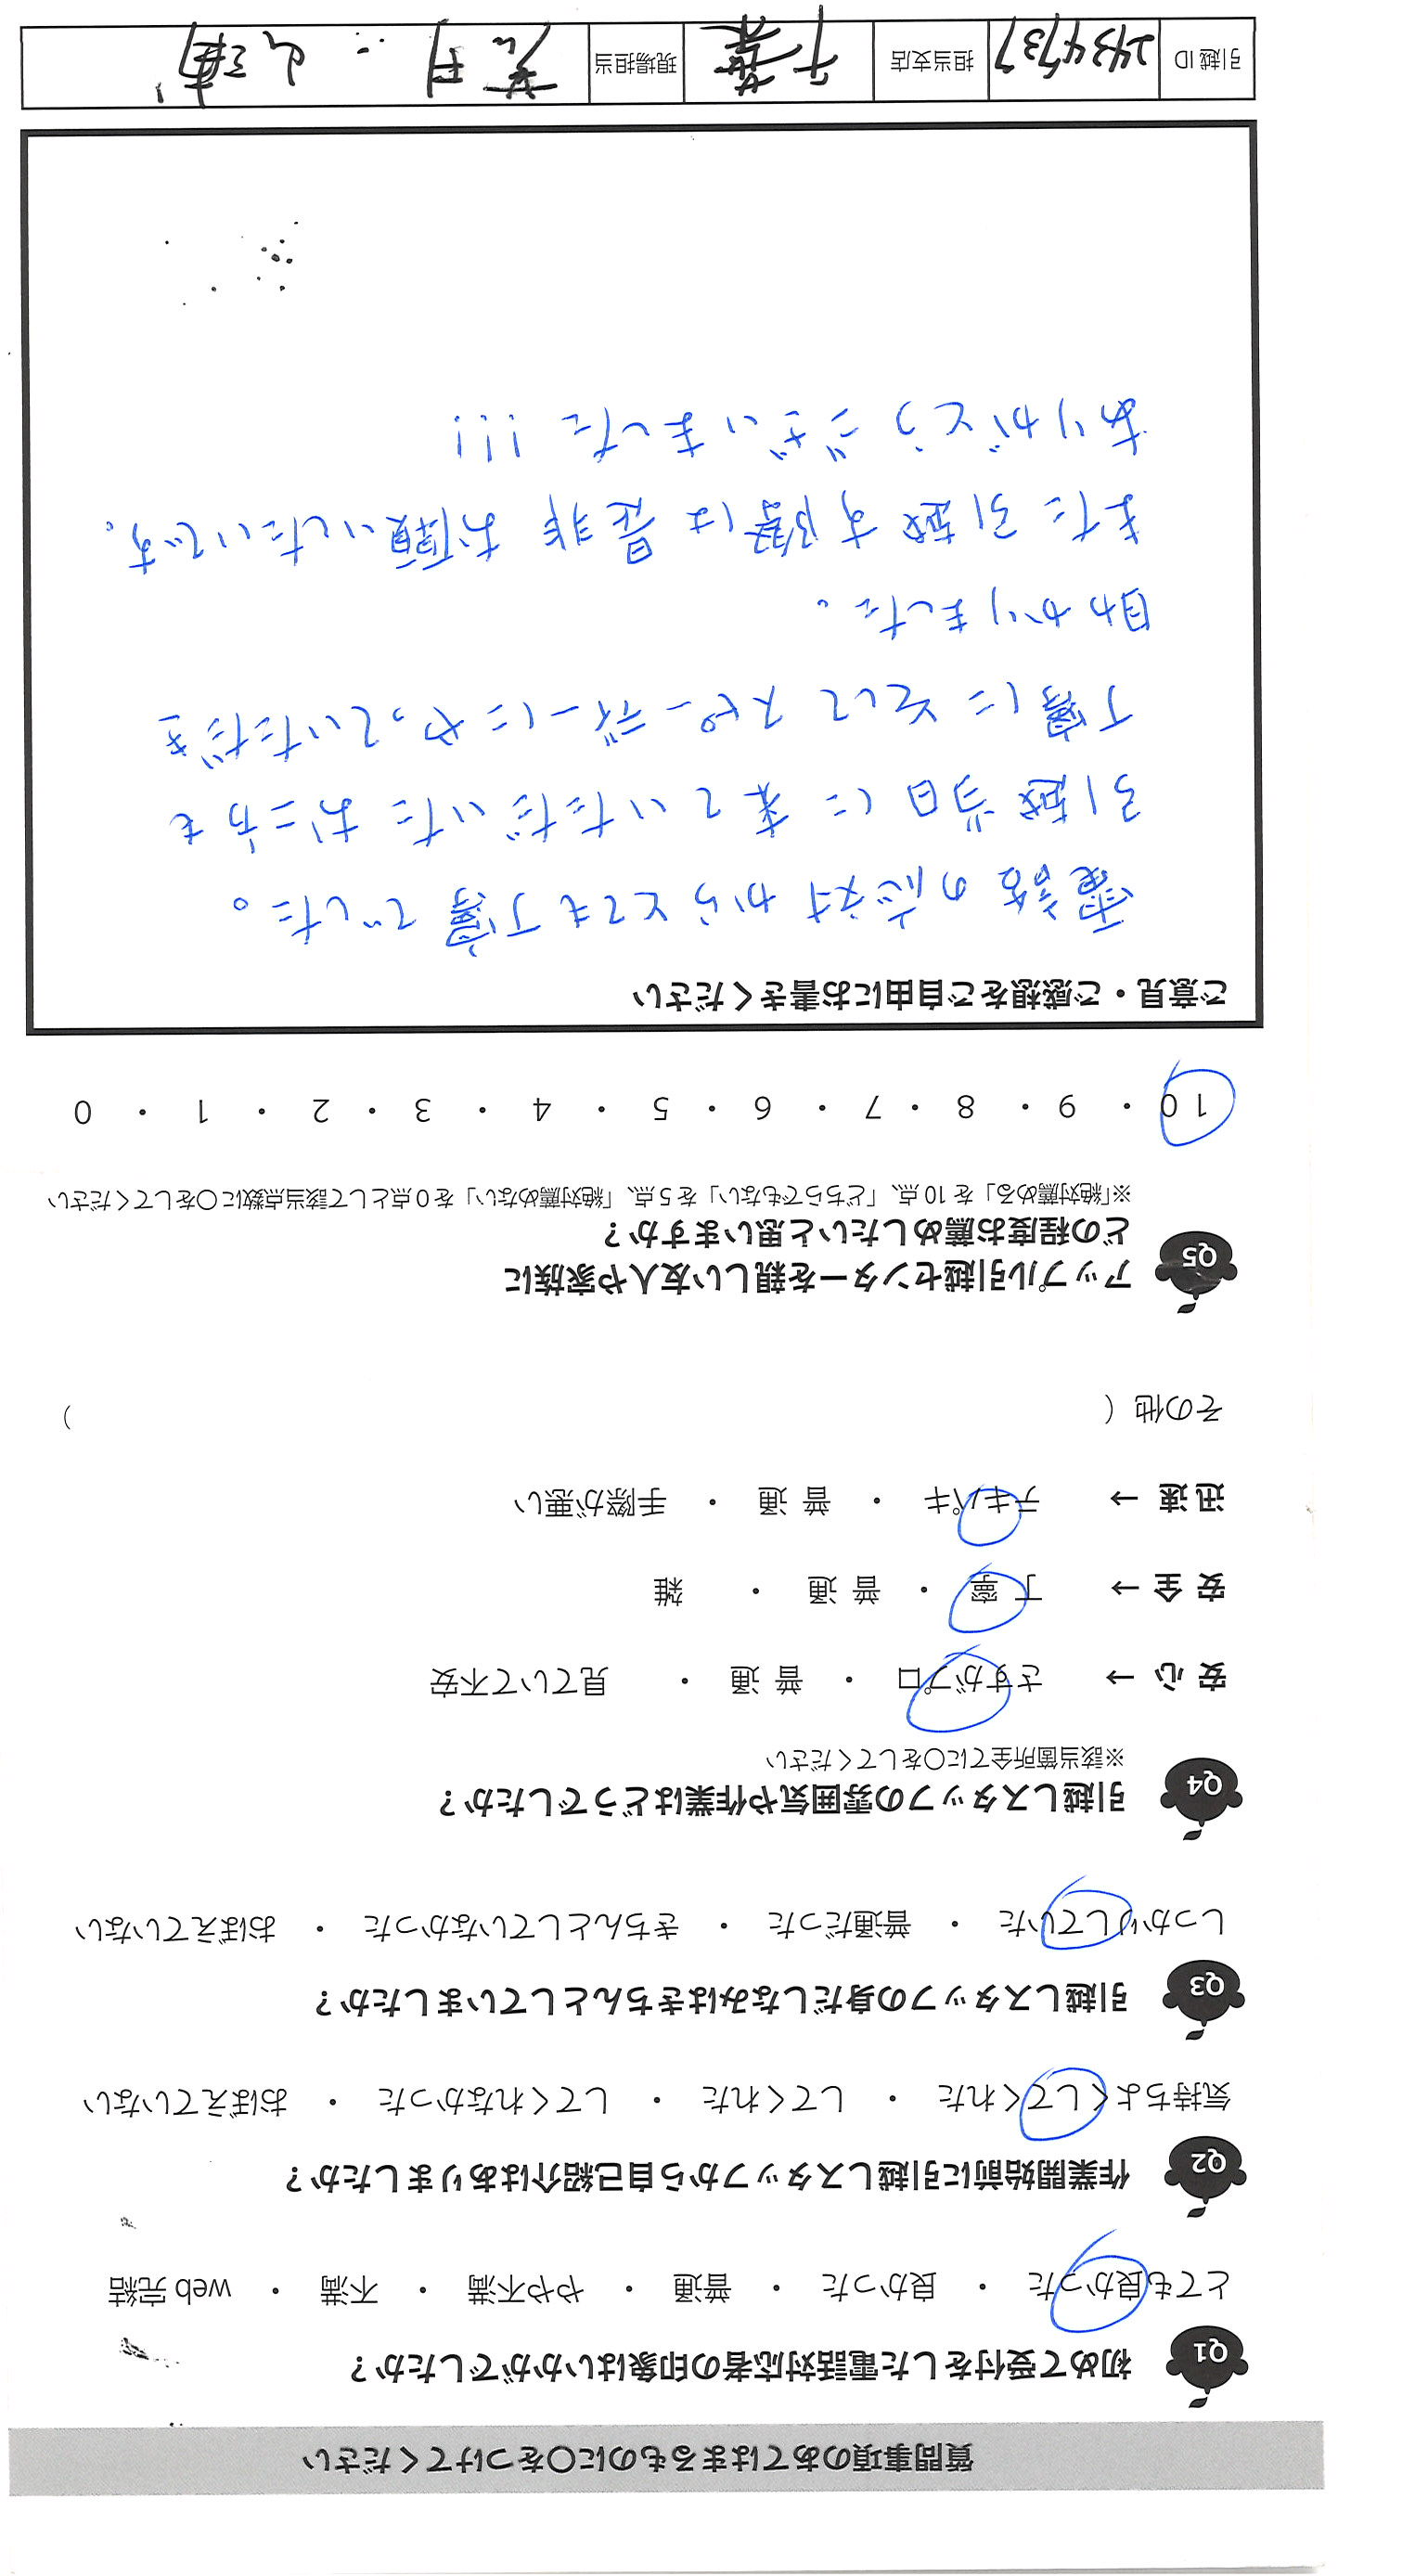 質問事項のあてはまるものに〇をつけてください
Q1 初めて受付をした電話対応者の印象はいかがでしたか？
とても良かった ・ 良かった ・ 普通 ・ やや不満 ・ 不満 ・ web 完結
Q2 作業開始前に引越しスタッフから自己紹介はありましたか？
気持ちよくしてくれた ・ してくれた ・ してくれなかった ・ おぼえていない
Q3 引越しスタッフの身だしなみはきちんとしていましたか？
しっかりしていた ・ 普通だった ・ きちんとしていなかった ・ おぼえていない
Q4 引越しスタッフの雰囲気や作業はどうでしたか？
※該当箇所全てに〇をしてください
安 心 → さすがプロ ・ 普 通 ・ 見ていて不安
安 全 → 丁 寧 ・ 普 通 ・ 雑
迅 速 → テキパキ ・ 普 通 ・ 手際が悪い
その他 （ ）
Q5 アップル引越センターを親しい友人や家族に
どの程度お薦めしたいと思いますか？
※「絶対薦める」を 10 点、「どちらでもない」を 5 点、「絶対薦めない」を 0 点として該当点数に〇をしてください
10 ・ 9 ・ 8 ・ 7 ・ 6 ・ 5 ・ 4 ・ 3 ・ 2 ・ 1 ・ 0
ご意見・ご感想をご自由にお書きください
電話の応対からとても丁寧でした。
引越当日に来ていただいたお二方も
丁寧にそしてスピーディーにやっていただき
助かりました。
また引越す際は是非お願いしたいです。
ありがとうございました!!!
引越 ID 2434737 担当支店 千葉 現場担当